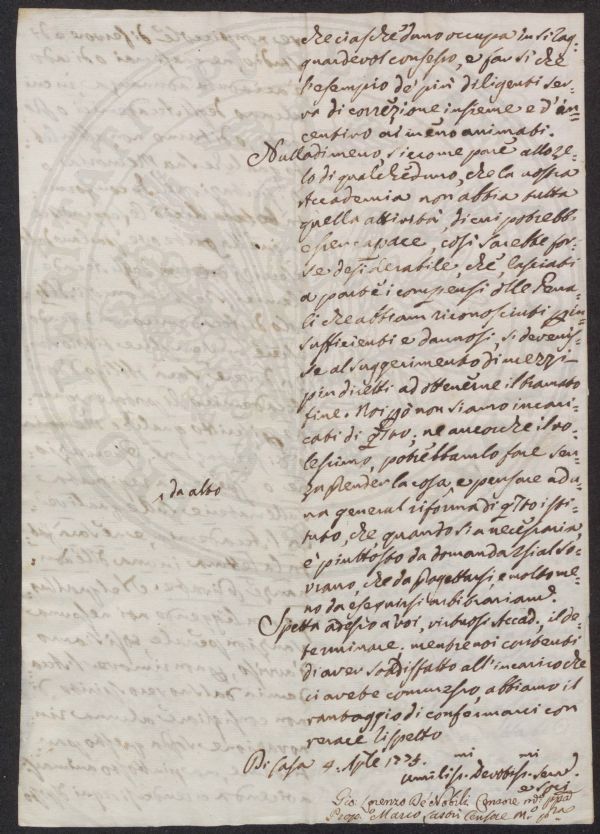 che ciaschéduno occupa in sì rag-
guardevol consesso, e far sì che
l'esempio de' più diligenti ser-
va di correzione insieme e d'in-
centivo ai meno animati.
Nulladimeno, siccome pare allo ze-
lo di qualchéduno, che la nostra
Accademia non abbia tutta
quella attività, di cui potrebb'
esser capace, così sarebbe for-
se desiderabile, che, lasciati
a parte i compensi delle Penali
che abbiam riconosciuti in-
sufficienti e dannosi, si devenis-
se al suggerimento di mezzi
più diretti ad ottenerne il bramato
fine. Noi pò non siamo incari-
cati di qsto; ne ancorche il vo-
lessimo, potrebbamlo fare sen-
za stender la cosa, e pensare ad u-
na general riforma di qsto isti-
tuto, che, quando sia necessaria,
è piuttosto da domandarsi al So-
vrano, che da progettarsi, e molto me-
no da eseguirsi arbitrariam.
Spetta adesso a voi, virtuosi Accad., il de-
terminare. mentre noi contenti
di aver soddisfatto all'incarico che
ci avete commesso, abbiamo il
vantaggio di confermarci con
verace rispetto
Di Casa 4. Aple 1774.
umiliss. Devotiss. Serv.
mi mi
e Soci
Gio: Lorenzo De' Nobili Censore
Marco Censore
da alto